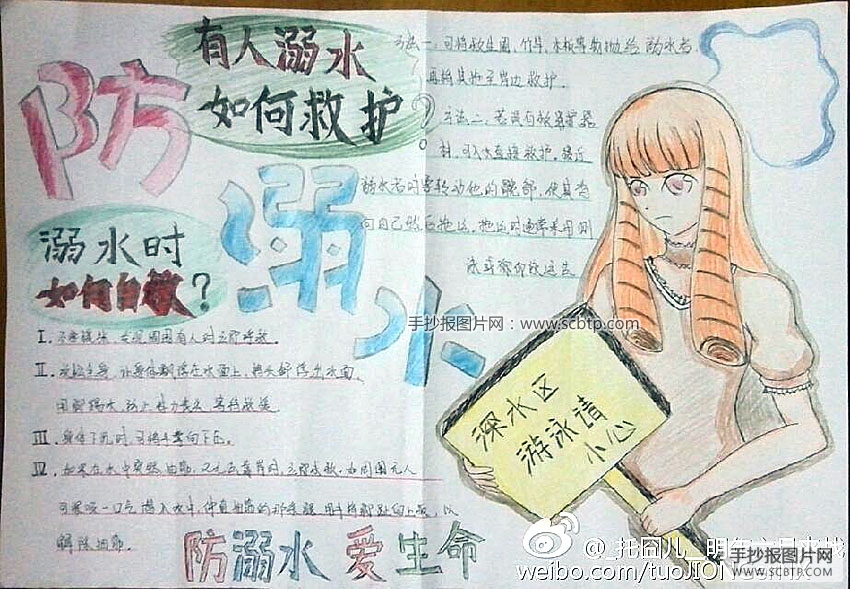 防溺水
有人溺水
如何救护?
方法一:可将救生圈、竹竿、木板等物抛给溺水者
再将其拖至岸边救护.
方法二:若没有救护器
材,可入水直接救护.接近
溺水者时要转动他的髋部,使其背
向自己然后拖运.拖运时通常采用侧
泳或仰泳拖运法
溺水时
如何自救?
I. 不要慌张,发现周围有人时立即呼救.
II. 放松全身,让身体飘浮在水面上,将头部浮出水面,
用脚踢水,防止体力丧失,等待救援
III. 身体下沉时,可将手掌向下压。
IV. 如果在水中突然抽筋,又无法靠岸时,立即求救.如周围无人
可深吸一口气潜入水中,伸直抽筋的那条腿,用手将脚趾向上扳,以
解除抽筋.
深水区
游泳请
小心
防溺水 爱生命
手抄报图片网:www.scbtp.com
@_托囧儿_明年六月来找
weibo.com/tuoJIONG
手抄报图片网
WWW.SCBTP.COM